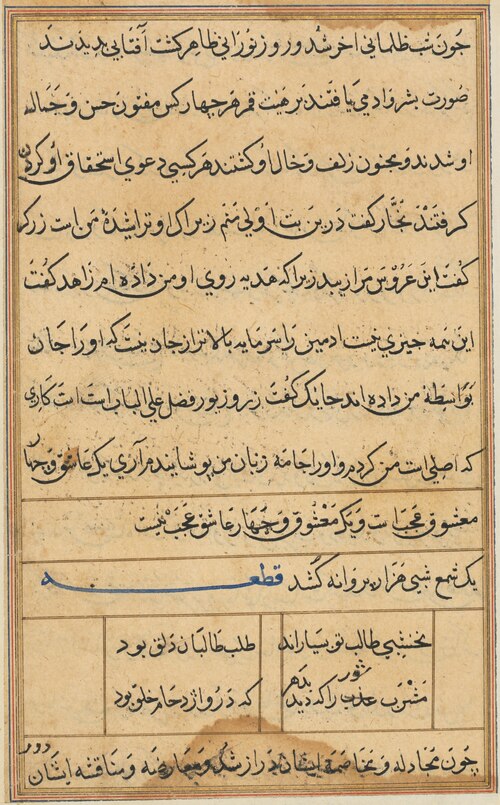 چون شب ظلمانی آخر شد و روز نورانی ظاهر کشت آفتابی بدیدند
صورت بشر و آدمی یافتند بر هیئت قمر هر چهار کس مفتون حسن و جمال
او شدند و مجنون زلف و خال او کشتند هر کسی دعوی استحقاق او کردن
کرفتند نجار کفت درین بت اولی منم زیراک او تراشیدۀ من است زرکر
کفت این عروس مرا زیبد زیرا که هدیه روی او من داده ام زاهد کفت
این همه چیزی نیست ادمین را سرمایه بالاتر از جان نیست که او را جان
بواسطۀ من داده اند حایک کفت زر و زیور فضل علی الباب است کاری
که اصلی است من کردم و او را جامه زبان من پوشانیدم آری یک عاشق و چهار
معشوق عجب است و یک معشوق و چهار عاشق عجب نیست
یک شمع شبی هزار پروانه کشد قطعه
نخشبی طالب تو بسیار اند
طلب طالبان دلق بود
مشرب عذب را که دید بدهر
شور
که در و ازدحام خلق بود
چون مجادله و مخاصمۀ ایشان دراز شد و معارضه و مناقشه ایشان
دور